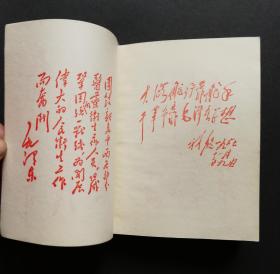 团结新老中西各部分
医药卫生工作人员组成
巩固的统一战线为开展
伟大的人民卫生工作
而奋斗
毛泽东
大海航行靠舵手
干革命靠毛泽东思想
林彪